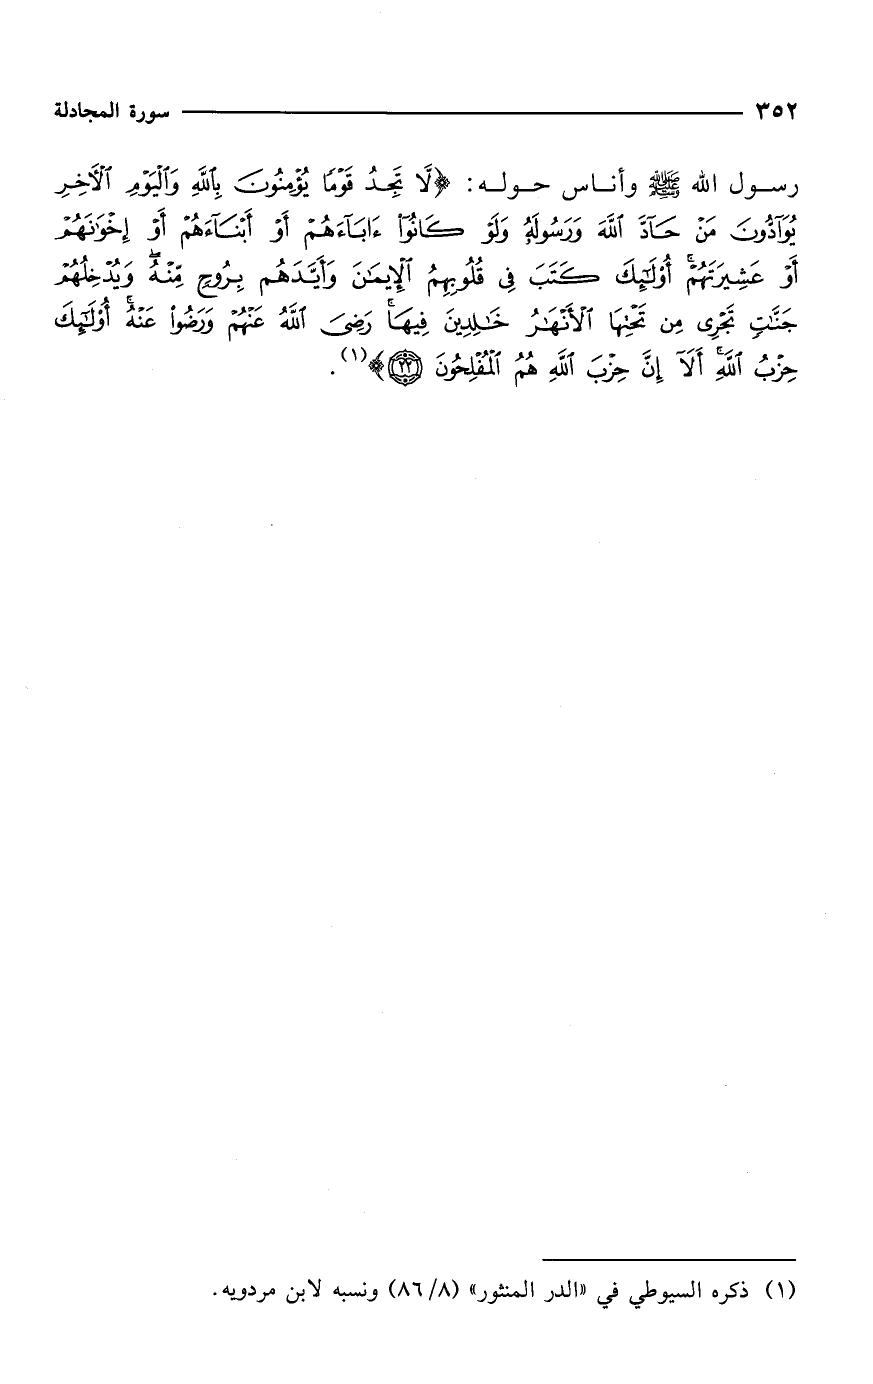 ٣٥٢ سورة المجادلة
رسول الله ﷺ وأناس حوله: ﴿لَّا تَجِدُ قَوْمًا يُؤْمِنُونَ بِٱللَّهِ وَٱلْيَوْمِ ٱلْآخِرِ
يُوَآدُّونَ مَنْ حَآدَّ ٱللَّهَ وَرَسُولَهُۥ وَلَوْ كَانُوٓا۟ ءَابَآءَهُمْ أَوْ أَبْنَآءَهُمْ أَوْ إِخْوَٰنَهُمْ
أَوْ عَشِيرَتَهُمْ ۚ أُو۟لَٰٓئِكَ كَتَبَ فِى قُلُوبِهِمُ ٱلْإِيمَٰنَ وَأَيَّدَهُم بِرُوحٍ مِّنْهُ ۖ وَيُدْخِلُهُمْ
جَنَّٰتٍ تَجْرِى مِن تَحْتِهَا ٱلْأَنْهَٰرُ خَٰلِدِينَ فِيهَا ۚ رَضِىَ ٱللَّهُ عَنْهُمْ وَرَضُوا۟ عَنْهُ ۚ أُو۟لَٰٓئِكَ
حِزْبُ ٱللَّهِ ۚ أَلَآ إِنَّ حِزْبَ ٱللَّهِ هُمُ ٱلْمُفْلِحُونَ ٢٢﴾(١).
(١) ذكره السيوطي في «الدر المنثور» (٨/ ٨٦) ونسبه لابن مردويه.